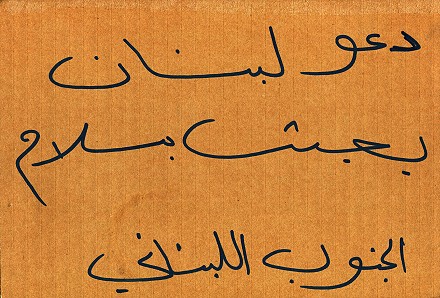 دعو لبنان
يعيش بسلام
الجنوب اللبناني